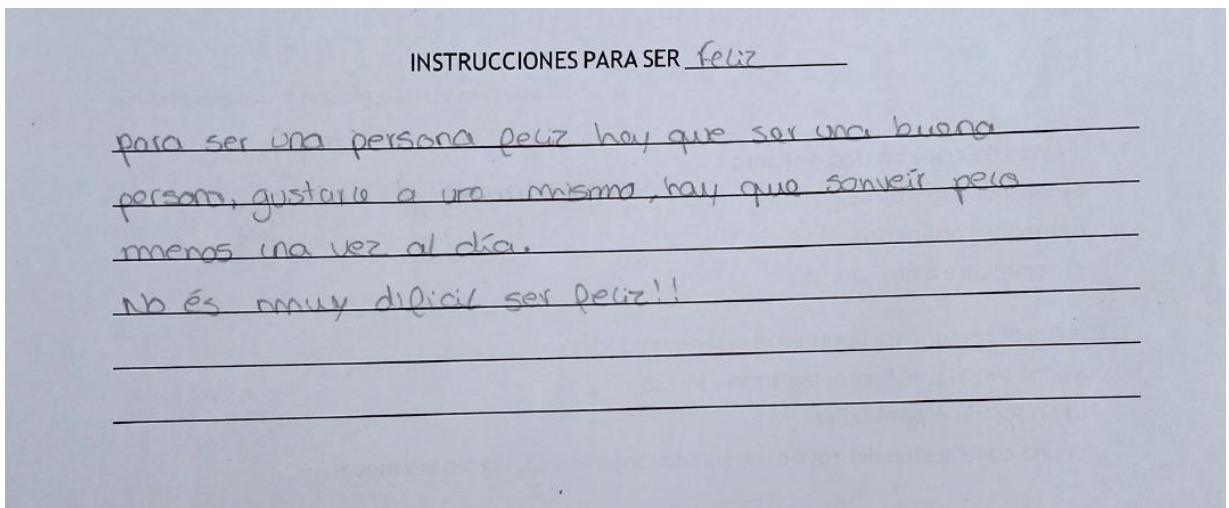 INSTRUCCIONES PARA SER feliz
para ser una persona feliz hay que ser una buena
persona, gustarle a uno mismo, hay que sonveir pelo
menos una vez al día.
No és muy dificil ser feliz!!